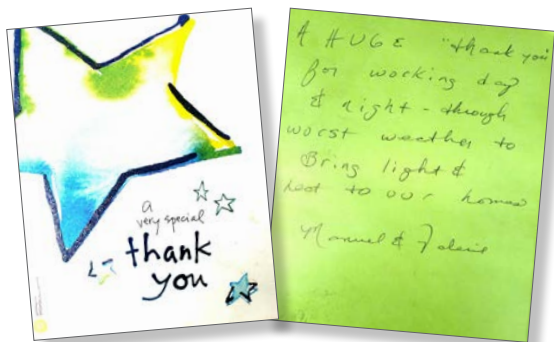 a
very special
thank
you
A HUGE "thank you"
for working day
& night - through
worst weather to
Bring light &
heat to our homes
Manuel &